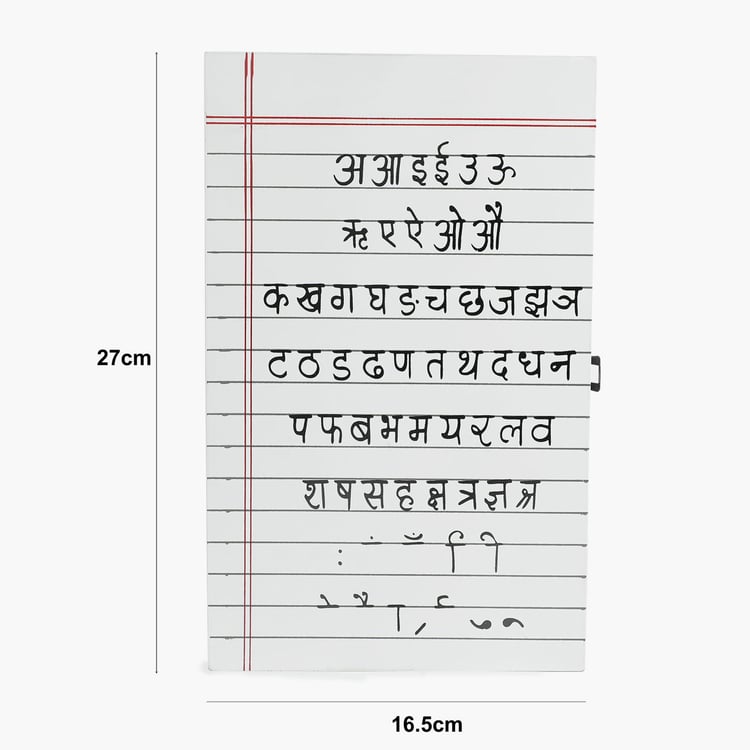 अ आ इ ई उ ऊ
ऋ ए ऐ ओ औ
क ख ग घ ङ च छ ज झ ञ
ट ठ ड ढ ण त थ द ध न
प फ ब भ म य र ल व
श ष स ह क्ष त्र ज्ञ श्र
27cm
16.5cm